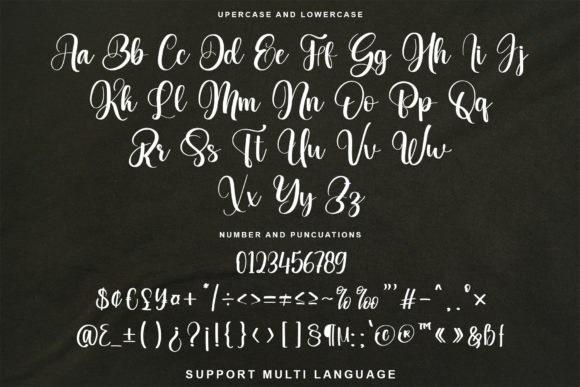 UPERCASE AND LOWERCASE
Aa Bb Cc Dd Ee Ff Gg Hh Ii Jj
Kk Ll Mm Nn Oo Pp Qq
Rr Ss Tt Uu Vv Ww
Xx Yy Zz
NUMBER AND PUNCUATIONS
0123456789
$¢€£¥¤+*/÷<>=≠≤≥~%‰"'#-^¸.°×
@&_±()¿?¡!{}‹›[]§¶µ:;‘©®™«»&
SUPPORT MULTI LANGUAGE